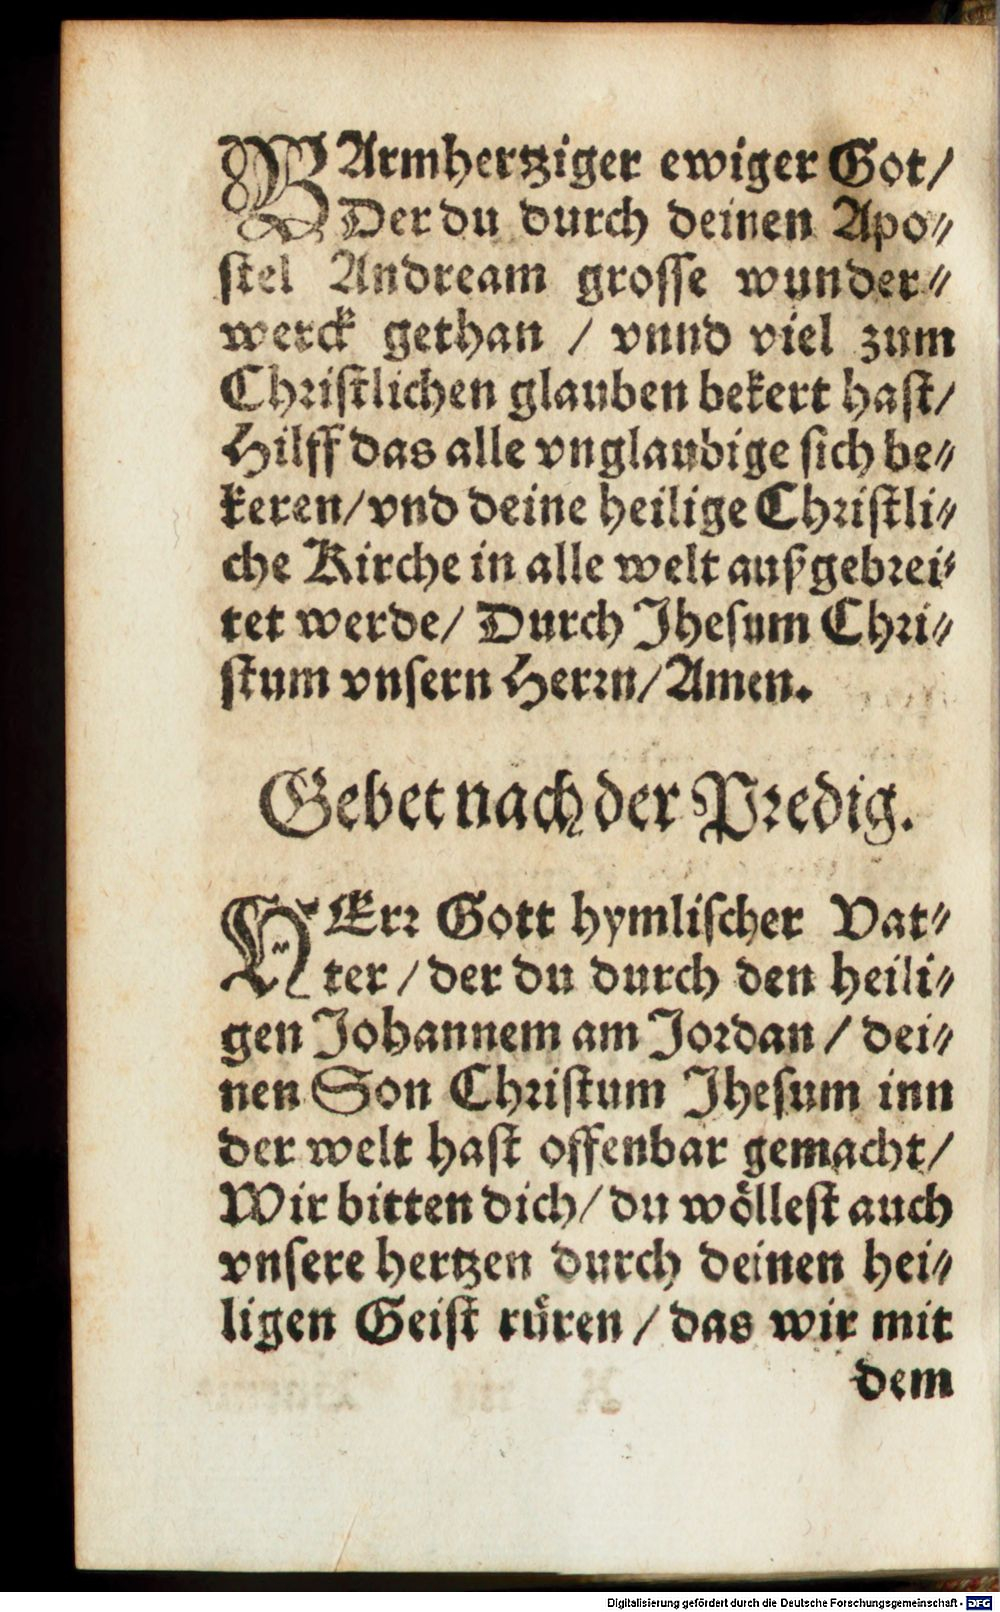 BArmhertziger ewiger Got/
Der du durch deinen Apo⸗
stel Andream grosse wunder⸗
werck gethan / vnnd viel zum
Christlichen glauben bekert hast/
Hilff das alle vnglaubige sich be⸗
keren/vnd deine heilige Christli⸗
che Kirche in alle welt außgebrei⸗
tet werde/ Durch Jhesum Chri⸗
stum vnsern Herrn/Amen.
Gebet nach der Predig.
HErr Gott hymlischer Vat⸗
ter / der du durch den heili⸗
gen Johannem am Jordan / dei⸗
nen Son Christum Jhesum inn
der welt hast offenbar gemacht/
Wir bitten dich/ du wöllest auch
vnsere hertzen durch deinen hei⸗
ligen Geist rüren / das wir mit
dem
Digitalisierung gefördert durch die Deutsche Forschungsgemeinschaft - DFG